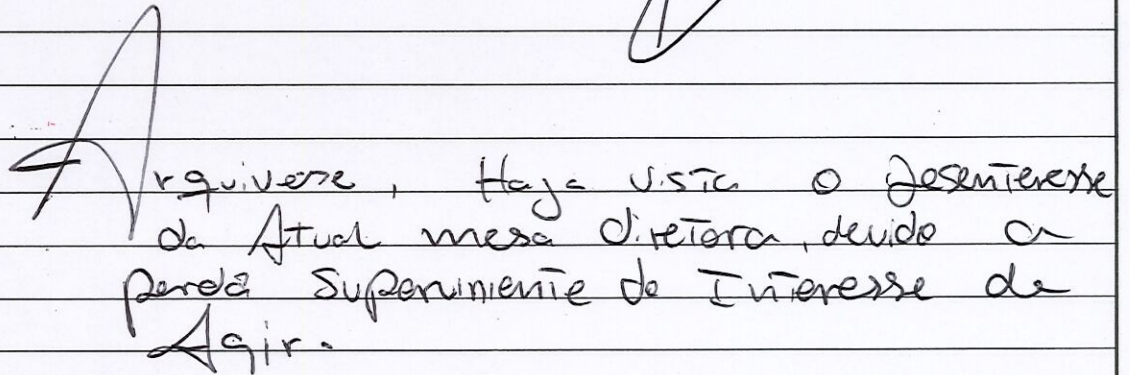 Arquivese, Haja vista o Desenteresse
da Atual mesa diretora, devido a
perda Superviniente do Interesse de
Agir.